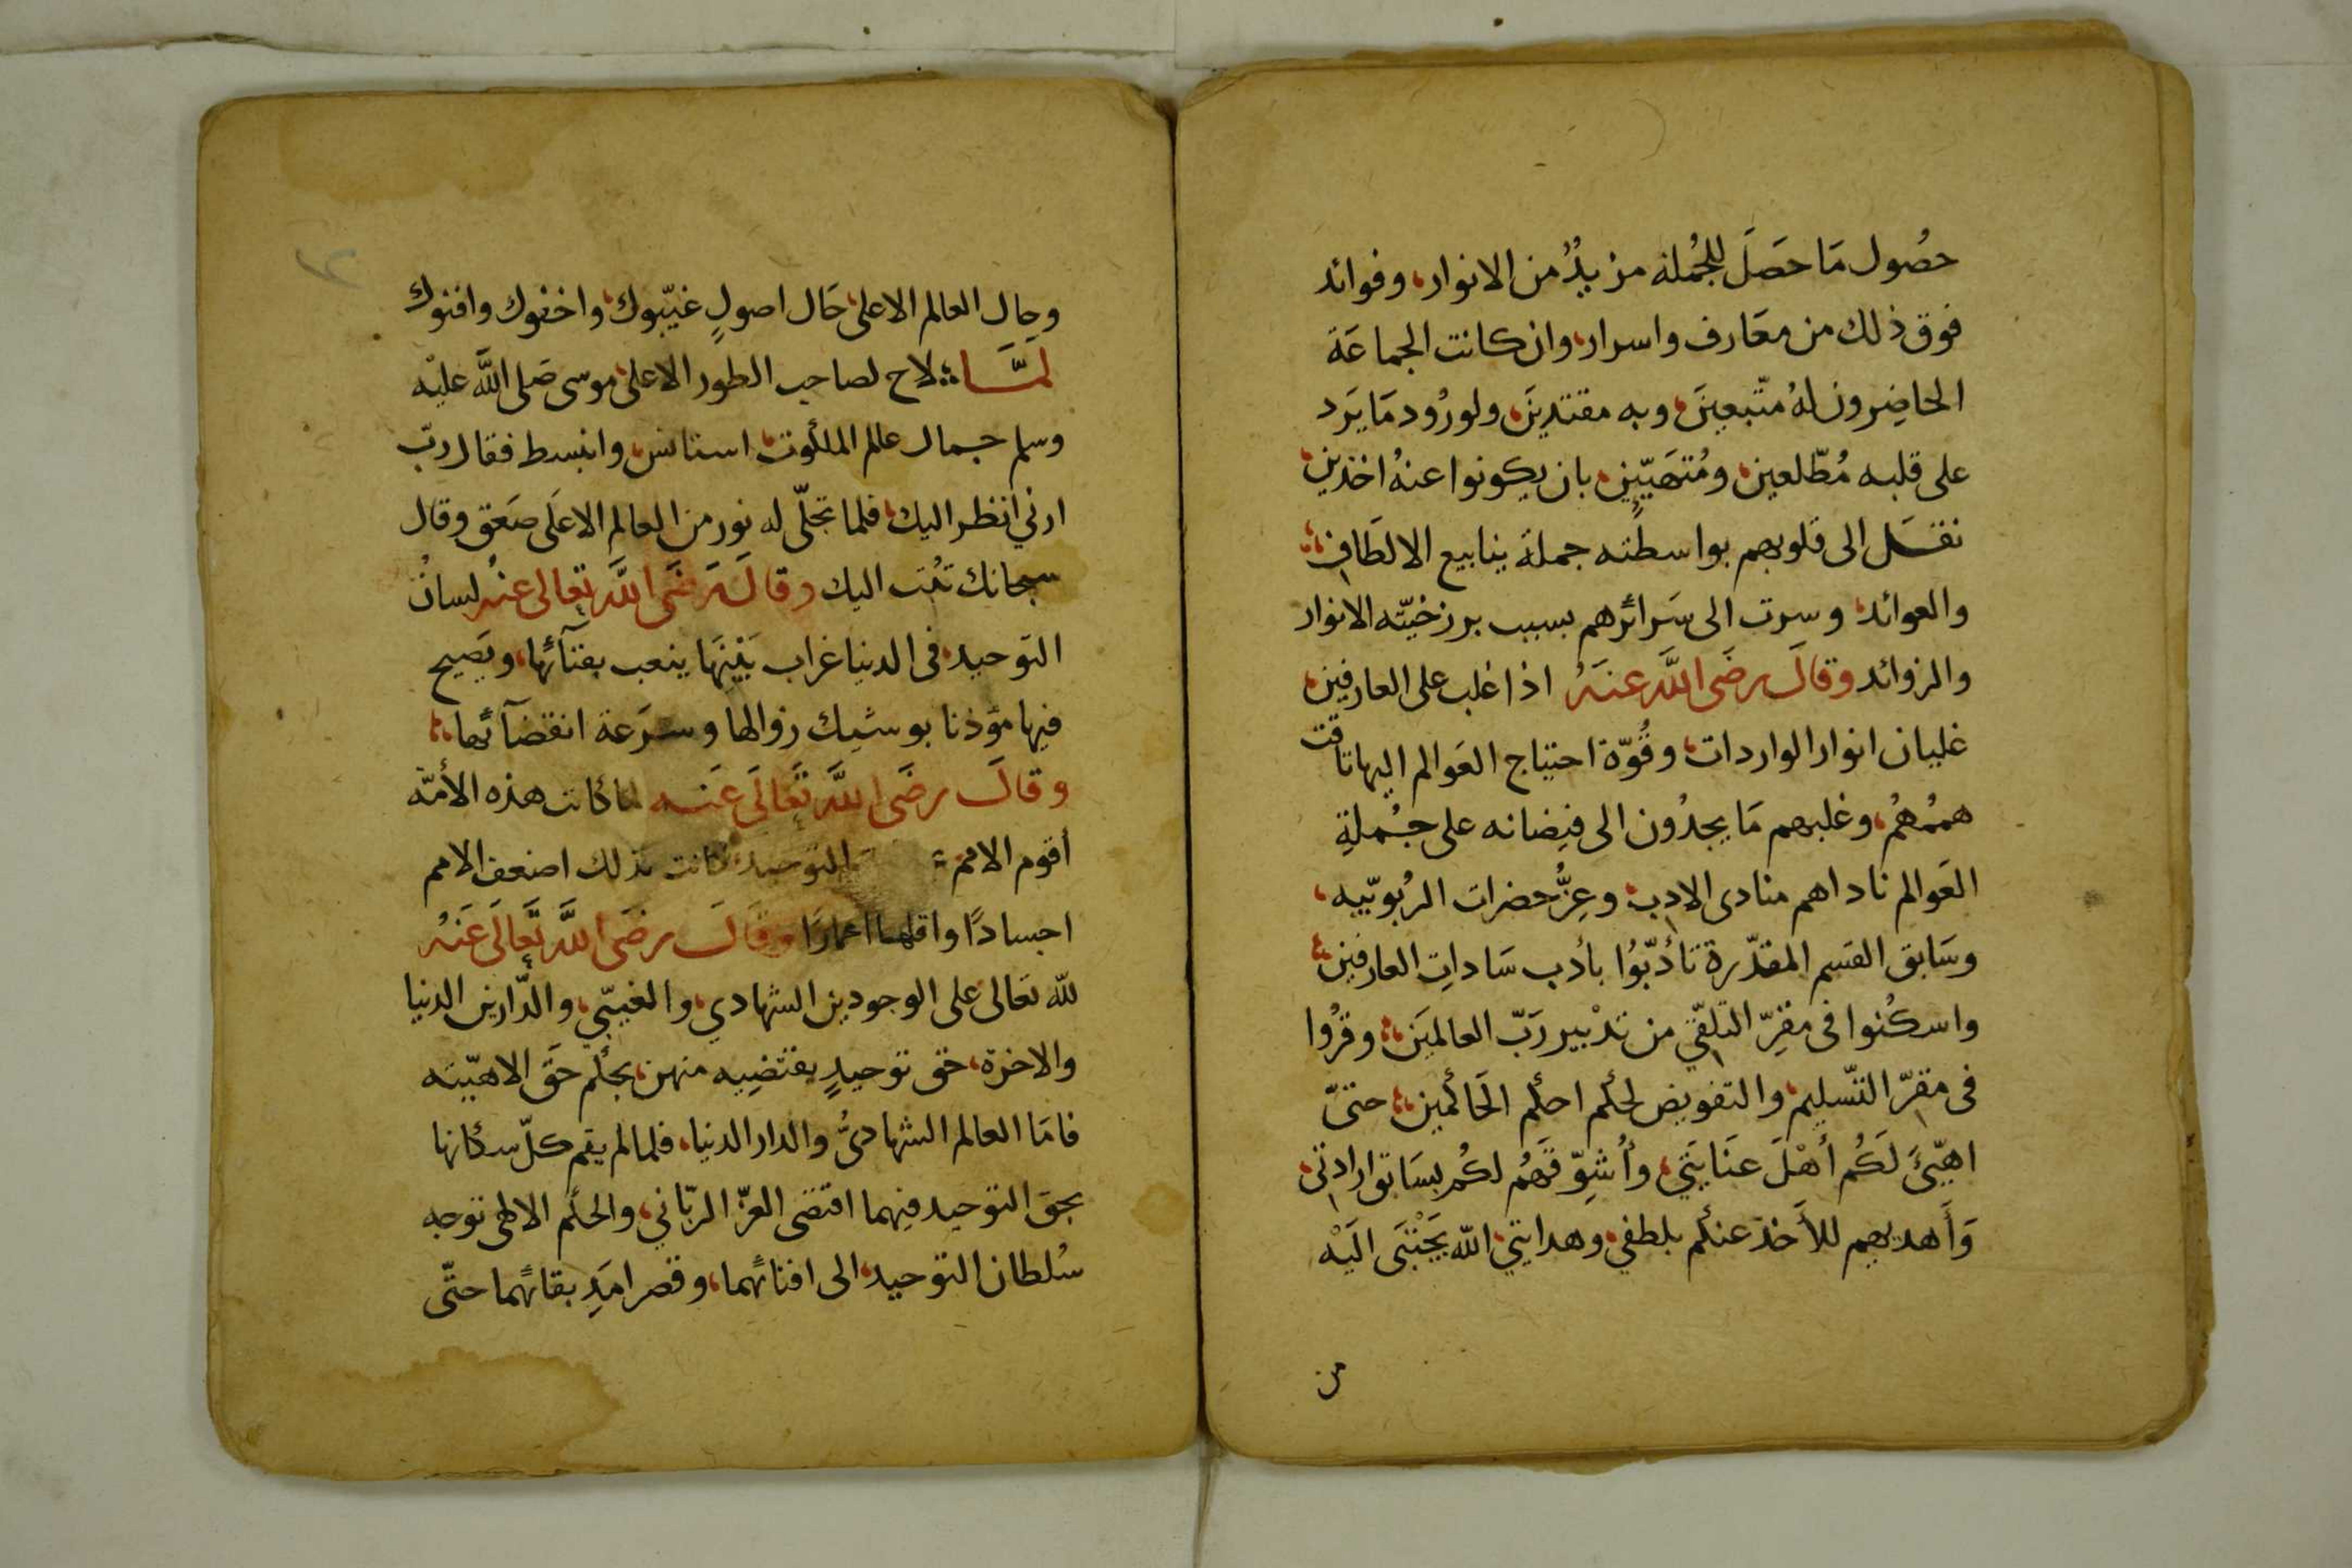 حصُول مَا حصَلَ للجُملة مزيدٌ من الانوار، وفوائد
فوق ذلك من معَارف واسرار، وان كانت الجماعَة
الحاضِرون لهُ متّبعينَ، وبه مقتدينَ، ولورُود مَا يَرد
على قلبه مُطّلعين، ومُتهَيّيٍن، بان يكونوا عنهُ اخذين،
نقـَل الى قلوبهم بواسطته جملة ينابيع الالطَاف،
والعوائد، وسرت الى سَرائرهم بسبب برزخيّته الانوار
والزوائد وقالَ رضَى اللَّه عنهُ اذا غلب على العارفين،
غليان انوار الواردات، وقُوّة احتياج العَوالم اليها تاقت
هممُهُم، وغلبهم مَا يجدُون الى فيضانه على جُملةِ
العَوالم ناداهم منادى الادب، وعِزُّ حضرات الرُبوبّيه،
وسَابق القسم المقدّرة تأدّبُوا بأدب سَاداتِ العارفين،
واسكُنوا فى مقرّ التلقّي من تدْبير رَبّ العالمَين، وقرُوا
فى مقرّ التّسليم، والتفويض لحكم احكم الحَاكمين، حتىّ
اهيّئَ لَكُم أهْلَ عنَايَتي، وأُشوِّقَهُم لكُم بسَابق ارادتى،
وَأَهديهم للأَخذ عنكم بلطفي، وهدايتي، اللّه يَجْتَبَى الَيْه
من
وحال العالم الاعلى، حَال اصولٍ غيّبوك، واخفوك وافنوك
لمَّـا، لاح لصاحب الطور الاعلى، موسى صَلى اللَّه عليْه
وسلم جمال عالم الملكوت، استانس، وانبسط فقال ربّ
ارني انظر اليك، فلما تجلّى له نور من العالم الاعلَى صَعق وقال
سبحانك تُبت اليك وقالَ رضَى اللَّه تعالى عنهُ لسانُ
التوحيد، فى الدنيا غراب بَيْنِهَا ينعب بفنآئها، ويَصيح
فيها مؤذنا بوشيك زوالها وسرَعة انقضآئها،
وقالَ رضَى اللَّه تَعَالَى عَنه لما كانت هذه الأمّة
أقوم الامم، التوحيد كانت بذلك اضعف الامم
اجسادًا واقلها اعمارًا وقالَ رضَى اللَّه تَعَالَى عَنهُ
للّه تعَالى على الوجودين الشهادي، والغيبّي، والدّارين الدنيا
والاخرة، حق توحيدٍ يقتضِيه منهن، بحكم حَق الاهيّته
فامَا العالم الشهادىُّ والدار الدنيا، فلما لم يقم كلّ سكانها
بحق التوحيد فيهما اقتضى العزّ الربّاني، والحكم الالهى توجه
سُلطان التوحيد، الى افنائهما، وقصر امَدِ بقائهما حتّى